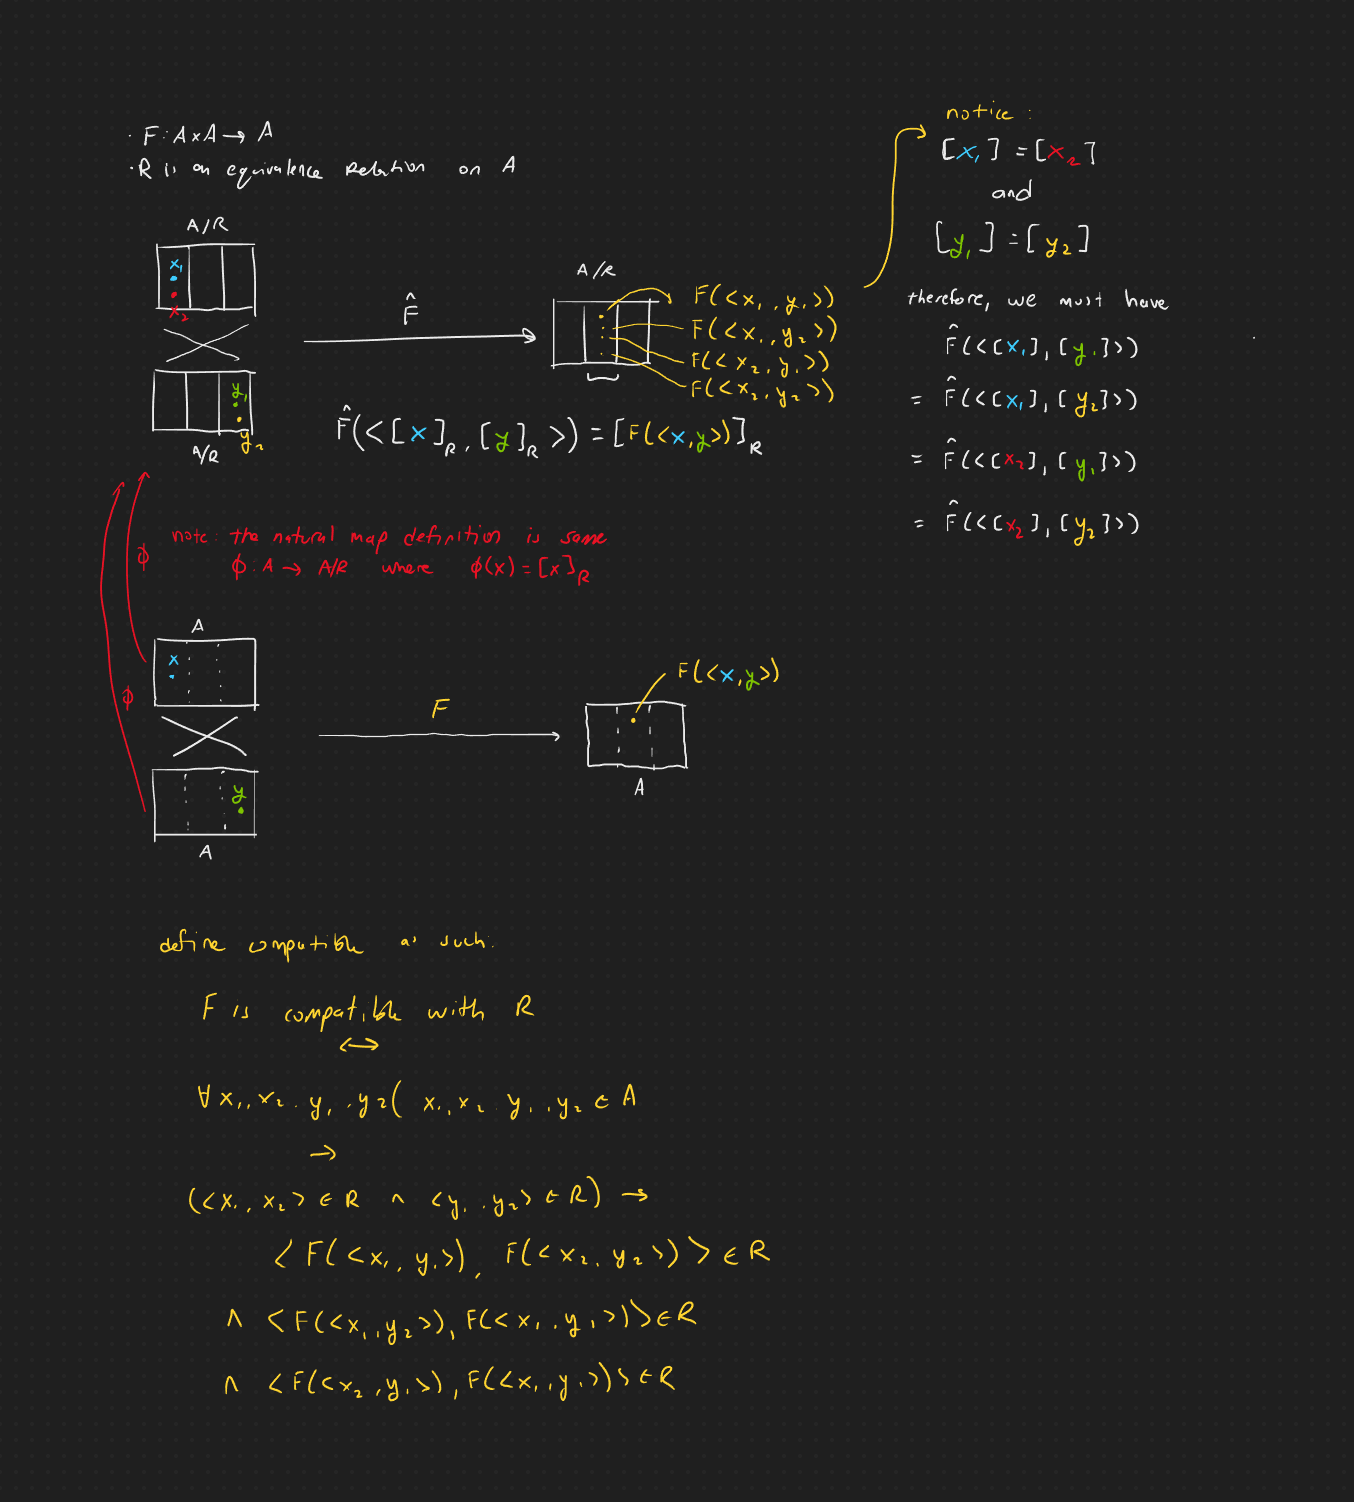 · F : A × A → A
· R is an equivalence relation on A
A/R
x₁
x₂
y₁
y₂
A/R
F̂
A/R
F(<x₁, y₁>)
F(<x₁, y₂>)
F(<x₂, y₁>)
F(<x₂, y₂>)
F̂(<[x]_R, [y]_R>) = [F(<x,y>)]_R
notice:
[x₁] = [x₂]
and
[y₁] = [y₂]
therefore, we must have
F̂(<[x₁], [y₁]>)
= F̂(<[x₁], [y₂]>)
= F̂(<[x₂], [y₁]>)
= F̂(<[x₂], [y₂]>)
note: the natural map definition is same
φ : A → A/R where φ(x) = [x]_R
φ
φ
A
x
y
A
F
F(<x,y>)
A
define compatible as such:
F is compatible with R
↔
∀x₁, x₂, y₁, y₂( x₁, x₂, y₁, y₂ ∈ A
→
(<x₁, x₂> ∈ R ∧ <y₁, y₂> ∈ R) →
<F(<x₁, y₁>), F(<x₂, y₂>)> ∈ R
∧ <F(<x₁, y₂>), F(<x₁, y₁>)> ∈ R
∧ <F(<x₂, y₁>), F(<x₁, y₁>)> ∈ R